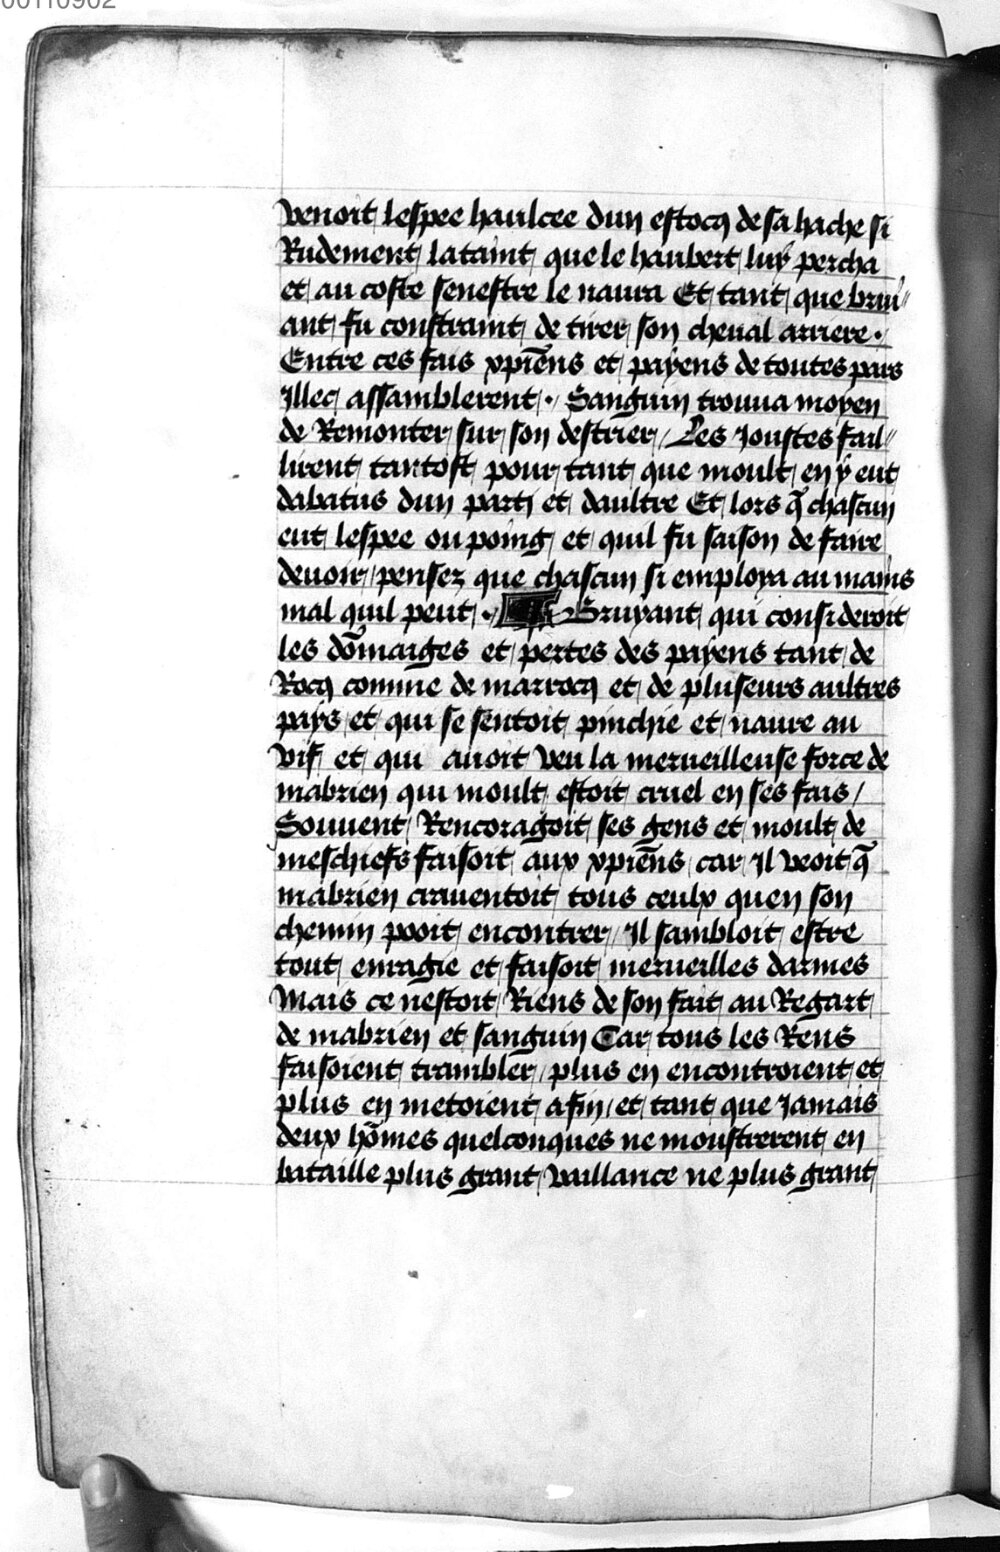 00110902
venoit lespee haulcee dun estocq de sa hache si
Rudement lataint que le haubert luy percha
et au coste senestre le naura Et tant que bruy//
ant fu constraint de tirer son cheual arriere .
Entre ces fais xpiēns et payens de toutes pars
Illec assamblerent . Sanguin trouua moyen
de Remonter sur son destrier / Les Joustes fail//
lirent tantost pour tant que moult en y eut
dabatus dun parti et daultre Et lors q̄ chascun
eut lespee ou poing et quil fu saison de faire
deuoir / pensez que chascun si employa au mains
mal quil peut . Bruyant qui consideroit
les dōmaiges et pertes des payens tant de
Rocq comme de marrocq et de pluseurs aultres
pays et qui se sentoit pinchie et naure au
vif et qui auoit veu la merueilleuse force de
mabrien qui moult estoit cruel en ses fais /
Souuent Rencoragoit ses gens et moult de
meschiefs faisoit aux xpiēns car Il veoit q̄
mabrien crauentoit tous ceulx quen son
chemin pooit encontrer / Il sambloit estre
tout enragie et faisoit merueilles darmes
Mais ce nestoit Riens de son fait au Regart
de mabrien et sanguin Car tous les Rens
faisoient trambler / plus en encontroient et
plus en metoient afin / et tant que Jamais
deux hōmes quelconques ne monstrerent en
bataille plus grant vaillance ne plus grant